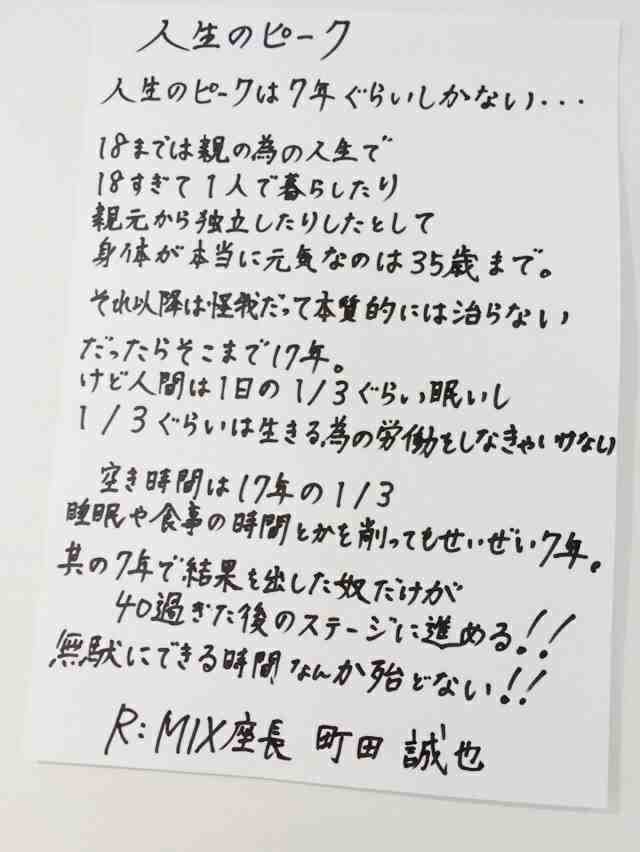 人生のピーク
人生のピークは7年ぐらいしかない・・・
18までは親の為の人生で
18すぎて1人で暮らしたり
親元から独立したりしたとして
身体が本当に元気なのは35歳まで。
それ以降は怪我だって本質的には治らない
だったらそこまで17年。
けど人間は1日の1/3ぐらい眠いし
1/3ぐらいは生きる為の労働をしなきゃいけない
空き時間は17年の1/3
睡眠や食事の時間とかを削ってもせいぜい7年。
其の7年で結果を出した奴だけが
40過ぎた後のステージに進める!!
無駄にできる時間なんか殆どない!!
R:MIX座長 町田 誠也